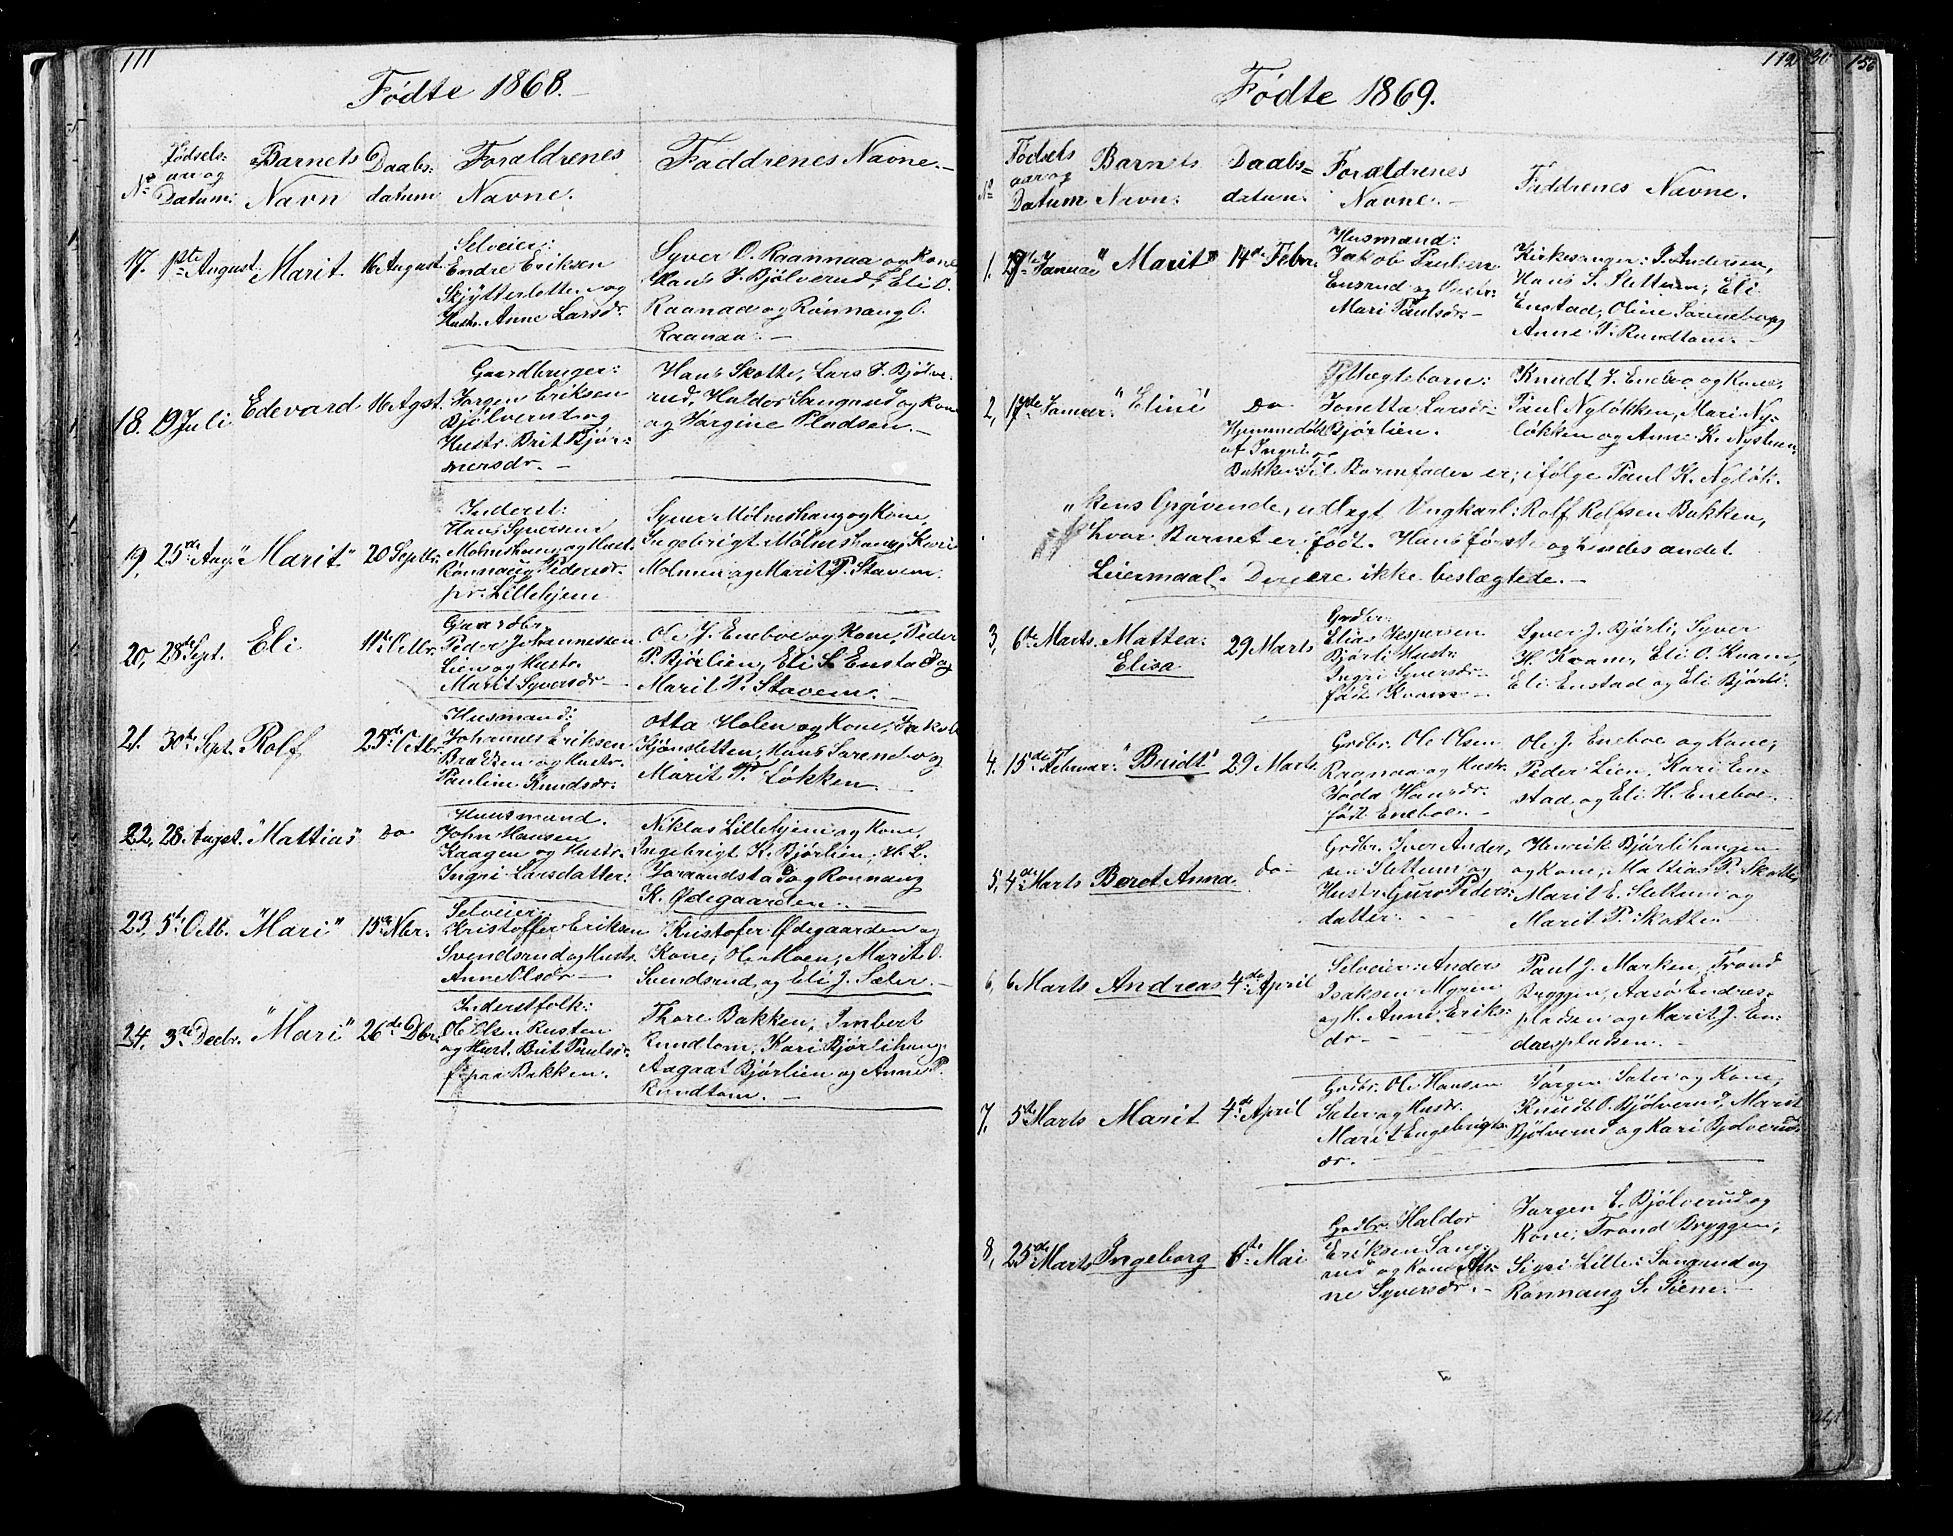 111
Fødte 1868.
No
Fødsels-
aar og
Datum:
Barnets
Navn
Daabs-
datum
Foraldrenes
Navne.
Faddrenes Navne.
17. 1ste August. Marit 16 August.
Selveier:
Endre Eriksen
Skjytterletten og
Hustr. Anne Larsdr.
Syver O. Raannaa og Kone,
Hans J. Bjølverud, Eli O.
Raanaa og Rønnaug O.
Raanaa.
18. 19 Juli Edevard 16 Agst.
Gaardbruger:
Jørgen Eriksen
Bjølverud og
Hustr. Brit Bjør-
nersdr.
Hans Skotte, Lars J. Bjølve-
rud, Haldor Sangrud og Kone
og Jørgine Pladsen.
19, 25de Aug. "Marit" 20 Septbr.
Inderst:
Hans Syversen
Molmshaug og Hust.
Rønnaug Pedersdr.
pr. Lillehjem
Syver Mølmshaug og Kone,
Ingebrigt Mølmshaug, Kari
Molmen og Marit P. Stavem.
20, 28de Sept. Eli 11te Octbr.
Gaardbr.
Peder Johannessen
Lien og Hustr.
Marit Syversdr.
Ole J. Eneboe og Kone, Peder
P. Bjørlien, Eli S. Enstad og
Marit P. Stavem.
21. 30te Sept. Rolf 25de Octbr.
Husmand:
Johannes Eriksen
Bradsen og Hustr.
Pauline Knudsdr.
Otta Holen og Kone, Jakob
Kjønsletten, Hans Sorend og
Marit P. Løkken.
22, 28 Augst. "Mattias" do
Huusmand.
John Hansen
Kaagen og Hustr.
Ingri Larsdatter.
Niklas Lillehjem og Kone,
Ingebrigt K. Bjørlien, H. L.
Joraandstad og Rønnaug
K. Ødegaarden.
23, 5te Octb. "Mari" 15de Nbr.
Selveier:
Kristoffer Eriksen
Svendsrud og Hustr.
Anne Olsdr.
Kristofer Ødegaarden og
Kone, Ole Moen, Marit O.
Svendsrud, og Eli J. Sæter.
24. 3de Decbr. "Mari" 26de Dbr.
Inderstfolk:
Ole Olsen Rusten
og Hust. Brit Paulsdr.
f. paa Bakken.
Thore Bakken, Imbert
Rundtom, Kari Bjørlihaug,
Aagaat Bjørlien og Anne P.
Rundtom.
112 30 156
Fødte 1869.
No
Fødsels
aar og
Datum
Barnets
Navn:
Daabs-
datum.
Foraldrenes
Navne.
Faddrenes Navne.
1. Januar "Marit" 14de Febr.
Husmand:
Jakob Paulsen
Ensrud og Hustr:
Mari Paulsdr.
Kirkesanger: P. Andersen,
Hans S. Slettum, Eli
Enstad, Oline Sønneborg
Anne J. Rundtom.
2, 17de Januar. "Eline" Do
Hjemmedøbt
af Ingri
Bakken.
Uægtebarn:
Jonetta Larsdr.
Bjørlien.
Knudt J. Enebo og Kone,
Paul Nyløkken, Mari Ny-
løkken og Anne K. Nystuen.
Til Barnefader er, ifølge Paul K. Nyløk-
"kens Opgivende, udlagt Ungkarl: Rolf Rolfsen Bakken,
hvor Barnet er født. Hans første og hendes andet
Leiermaal. De ere ikke beslægtede.
3, 6te Marts. Mattea:
Elisa
29 Marts
Grdbr:
Elias Jespersen
Bjørli Hustr:
Ingri Syversdr.
født Kvam
Syver J. Bjørli, Syver
H. Kvam, Eli O. Kvam,
Eli Enstad og Eli Bjørli.
4. 15de Februar. "Bendt" 29 Marts.
Grdbr. Ole Olsen
Raanaa og Hustr.
Jøda Hansdr.
født Eneboe.
Ole J. Eneboe og Kone,
Peder Lien, Kari En-
stad og Eli H. Eneboe.
5, 4de Marts Beret Anna do
Grdbr. Iver Ander-
sen Slettum og
Hustr. Guro Peders-
datter.
Henrik Bjørlihaugen
og Kone, Mattias P. Skotte,
Marit E. Slettum og
Marit P. Skotte.
6, 6 Marts Andreas 4de April
Selveier: Anders
Isaksen Myren
og H. Anne Eriks-
dr.
Paul J. Marken, Trond
Bryggen, Aasø Endres-
pladsen og Marit J. En-
drespladsen.
7, 5te Marts Marit 4de April
Grdbr. Ole Hansen
Sæter og Hustr.
Marit Engebrigts-
dr.
Jørgen Sæter og Kone,
Knudt O. Bjølverud, Marit
Bjølverud og Kari Bjølverud
8, 25de Marts Ingeborg 6te Mai
Grdbr. Haldor
Eriksen Sang-
rud og Kone An-
ne Syversdr.
Jørgen E. Bjølverud og
Kone, Trond Bryggen,
Sigri Lille: Sangrud og
Rønnaug S. Stene.